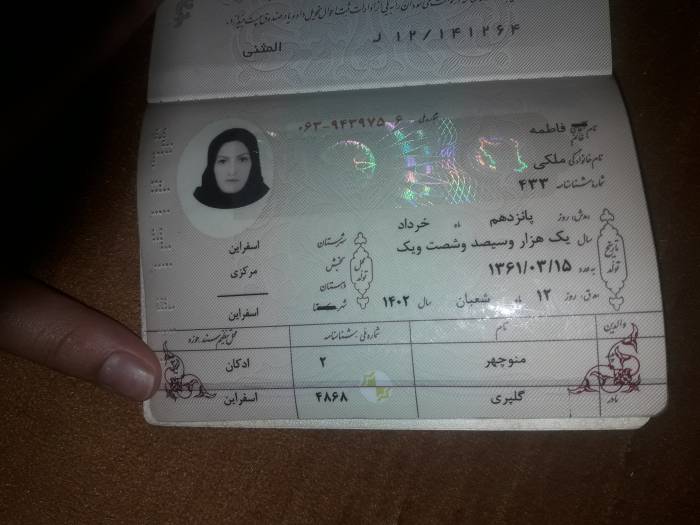 ۱۲/۱۴۱۲۶۴ ل
المثنی
شماره ملی ۰۶۳-۹۴۳۹۷۵-۶
نام خانم فاطمه
نام خانوادگی ملکی
شماره شناسنامه ۴۳۳
تاریخ تولد
روز پانزدهم ماه خرداد
سال یک هزار وسیصد وشصت ویک
۱۳۶۱/۰۳/۱۵
روز ۱۲ ماه شعبان سال ۱۴۰۲
محل تولد
شهرستان اسفراین
بخش مرکزی
دهستان
شهر اسفراین
والدین نام شماره ملی / شناسنامه محل تنظیم سند / حوزه
منوچهر ۲ ادکان
مادر گلپری ۴۸۶۸ اسفراین